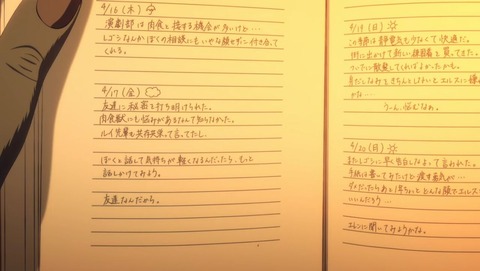 4/16 (木)
演劇部は肉食と接する機会が多いけど…
レゴシなんかぼくの相談にもいやな顔せずに付き合って
くれる。
4/17 (金)
友達に秘密を打ち明けられた。
肉食獣にも悩みがあるなんて知らなかった。
ルイ先輩も共存共栄って言ってたし、
ぼくと話して気持ちが軽くなるんだったら、もっと
話しかけてみよう。
友達なんだから。
4/19 (日)
この季節は静電気も少なくて快適だ。
街に出かけて新しい練習着を買ってきた。
ついでに散髪してくればよかったかも。
身だしなみをきちんとしないとエルスに嫌
かな…
うーん、悩むなぁ。
4/20 (日)
またレゴシに早く告白しなよって言われた。
手紙は書いてみたけど渡す勇気が…
ダメだったらあと1年ちょっとどんな顔でエルス
いいんだろう。
に聞いてみようかな。